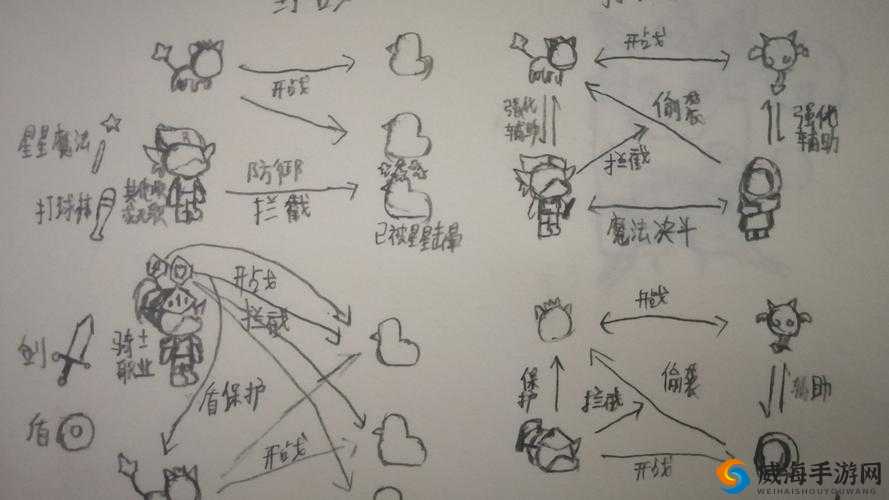 开战
星星魔法
打球棒
防御
拦截
已被星星击晕
开战
拦截
剑
骑士
职业
盾
盾保护
开战
开战
强化
辅助
偷袭
拦截
强化
辅助
魔法决斗
开战
保护
拦截
偷袭
辅助
开战
威海手游网
WEIHAISHOUYOUWANG